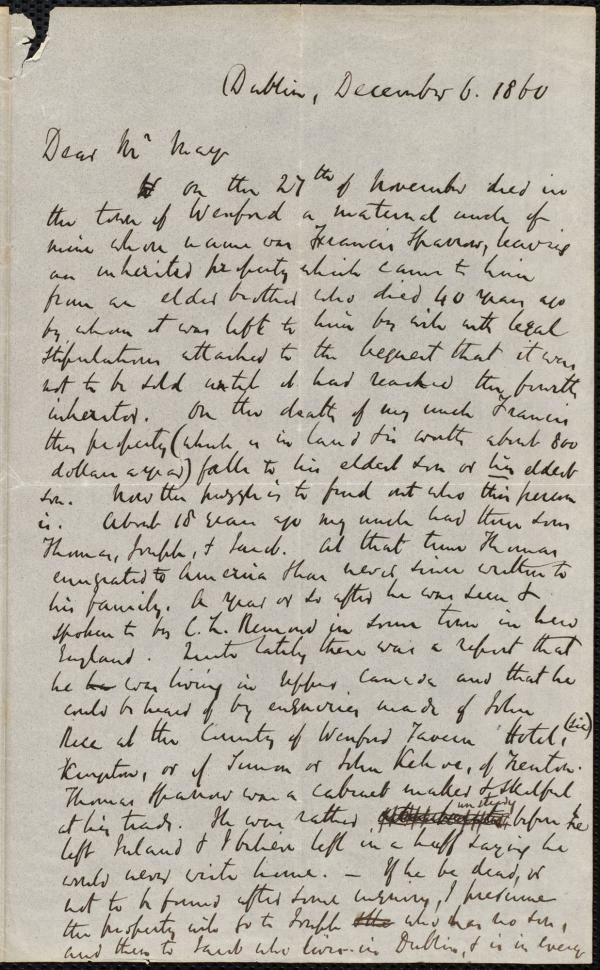 Dublin, December 6. 1860
Dear Mr May
on the 27th of November died in
the town of Wexford a maternal uncle of
mine whose name was Francis Sparrow, leaving
an inherited property which came to him
from an elder brother who died 40 years ago
by whom it was left to him by will with legal
stipulations attached to the bequest that it was
not to be sold until it had reached the fourth
inheritor. On the death of my uncle Francis
this property (which is in land & is worth about 800
dollars a year) falls to his eldest son or his eldest
son. Now the puzzle is to find out who this person
is. About 18 years ago my uncle had three sons
Thomas, Joseph, & Jacob. At that time Thomas
emigrated to America & has never since written to
his family. A year or so after he was seen &
spoken to by C. L. Remond in some town in New
England. Quite lately there was a report that
he was living in Upper Canada and that he
could be heard of by enquiries made of John
Rice at the County of Wexford Tavern Hotel, (sic)
Kingston, or of Simon or John Kehoe, of Trenton.
Thomas Sparrow was a cabinet maker & skilful
at his trade. He was rather unsteady before he
left Ireland & I believe left in a huff saying he
would never write home. — If he be dead, or
not to be found after some enquiry, I presume
the property will go to Joseph who has no son,
and then to Jacob who lives in Dublin, & is in every